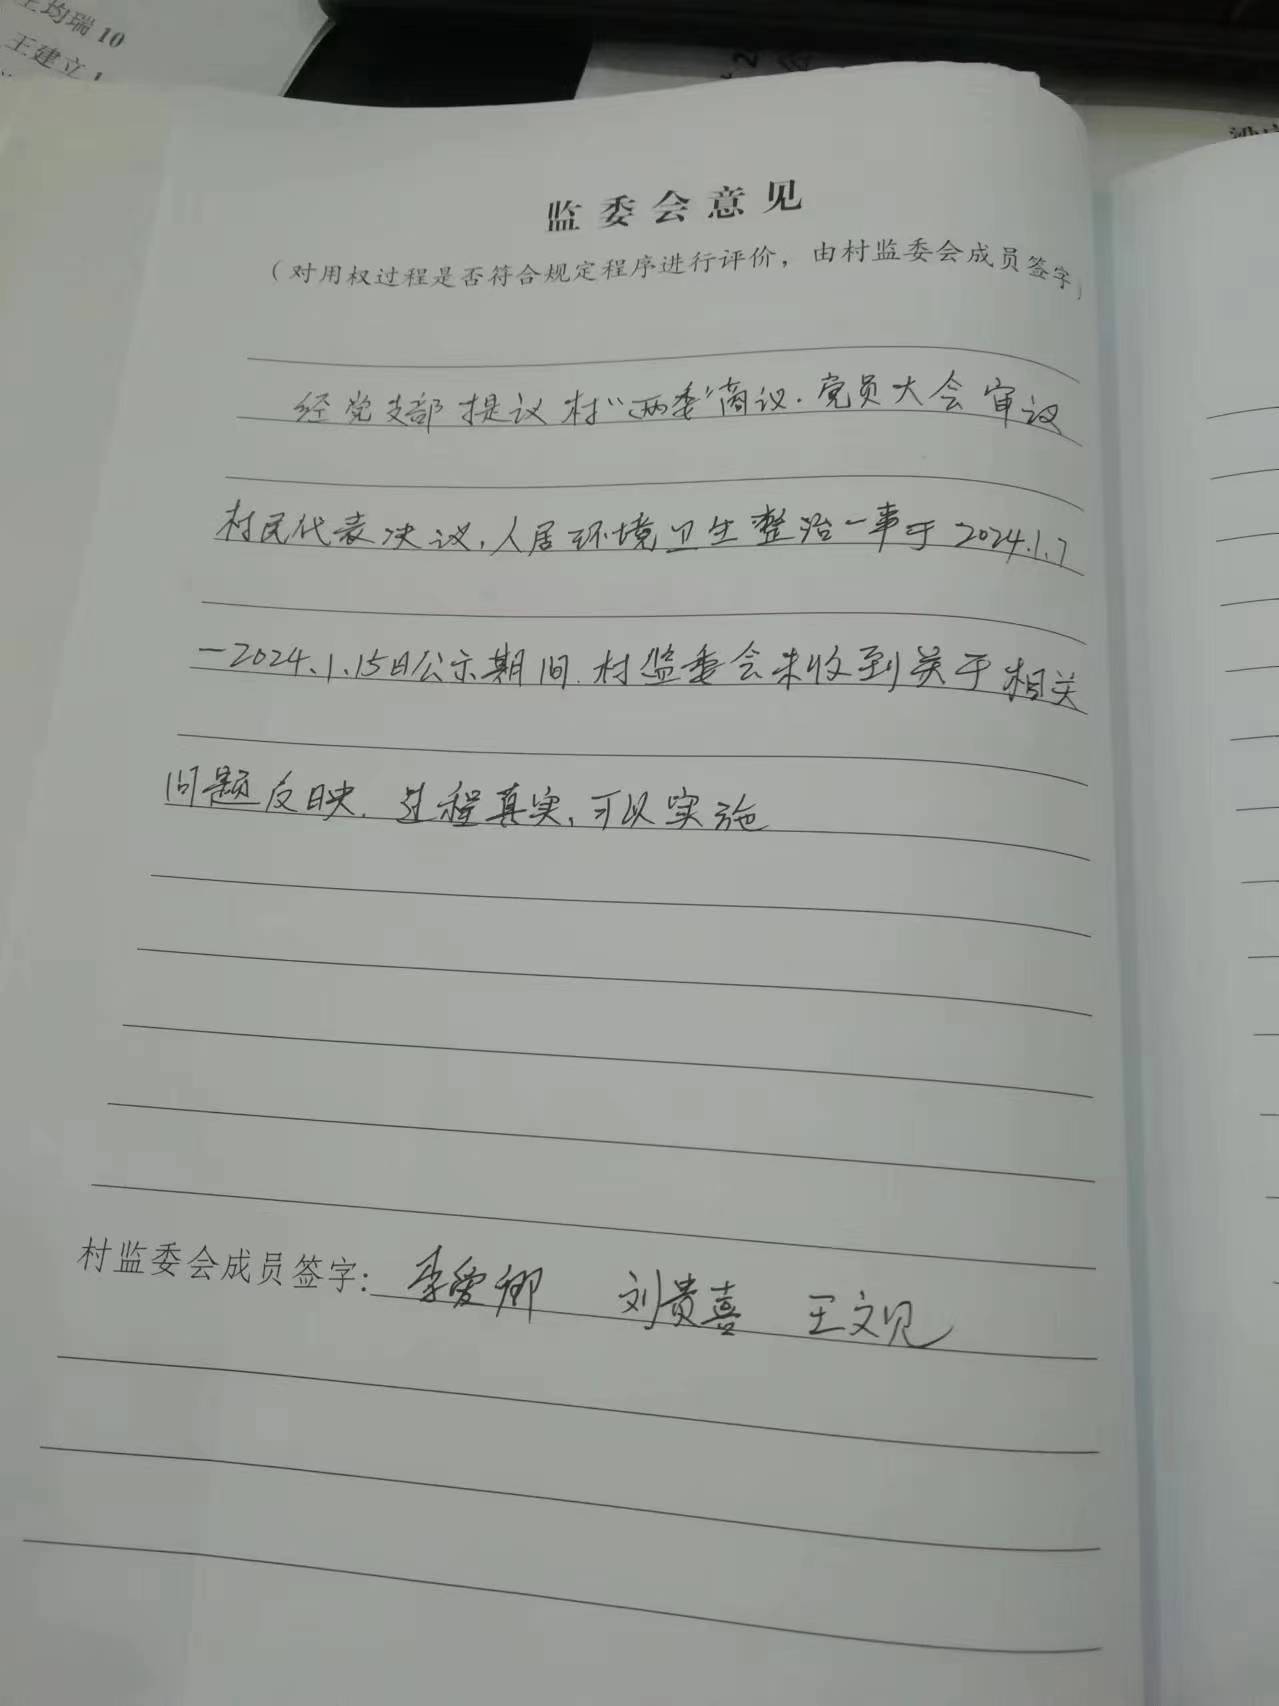 王均瑞 10
王建立
监委会意见
（对用权过程是否符合规定程序进行评价，由村监委会成员签字）
经党支部提议村“两委”商议.党员大会审议
村民代表决议,人居环境卫生整治一事于2024.1.7
—2024.1.15日公示期间.村监委会未收到关于相关
问题反映.过程真实,可以实施
村监委会成员签字: 李爱卿 刘贵喜 王文见